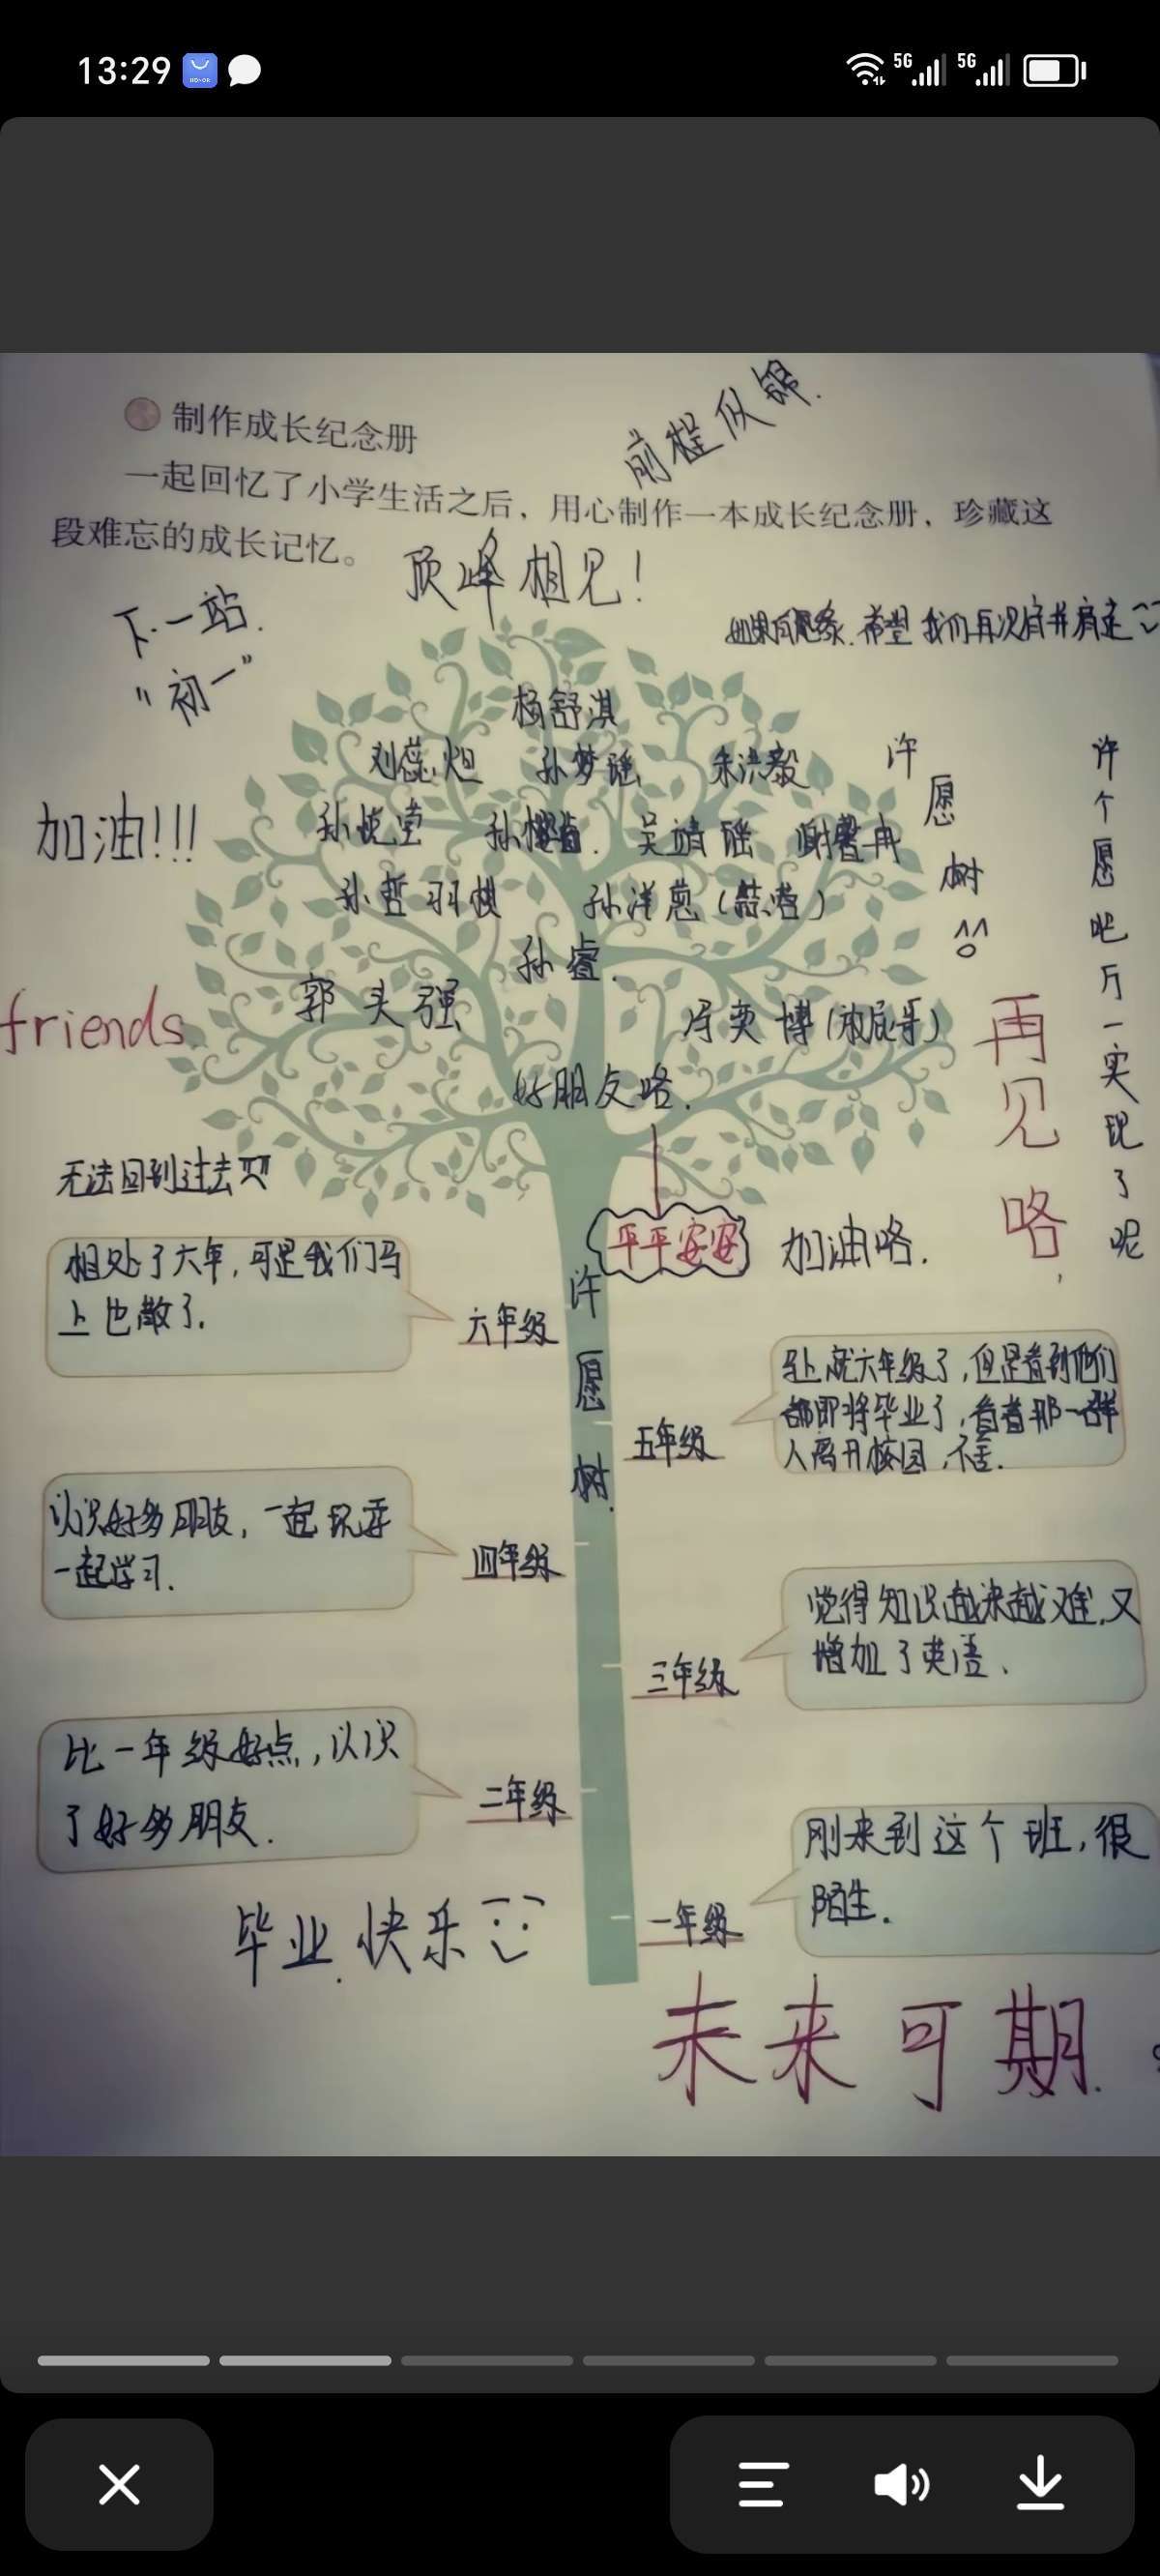 13:29
5G 5G
前程似锦.
制作成长纪念册
一起回忆了小学生活之后，用心制作一本成长纪念册，珍藏这
段难忘的成长记忆。
顶峰相见！
下一站.
“初一”
希望我们再次肩并肩走
杨舒淇
孙梦瑶
朱洪毅
加油!!!
孙悦莹
吴靖瑶
孙哲羽
孙洋葱
孙睿.
郭头强
friends
好朋友咯.
许愿树
许个愿吧万一实现了呢
再见咯,
无法回到过去
平平安安
加油咯.
许愿树.
相处了六年,可是我们马
上也散了.
六年级
马上就六年级了,但是看到他们
都即将毕业了,看着那一群
人离开校园,不舍.
五年级
认识好多朋友,一起玩耍
一起学习.
四年级
觉得知识越来越难,又
增加了英语.
三年级
比一年级好点,认识
了好多朋友.
二年级
刚来到这个班,很
陌生.
一年级
毕业快乐
未来可期.